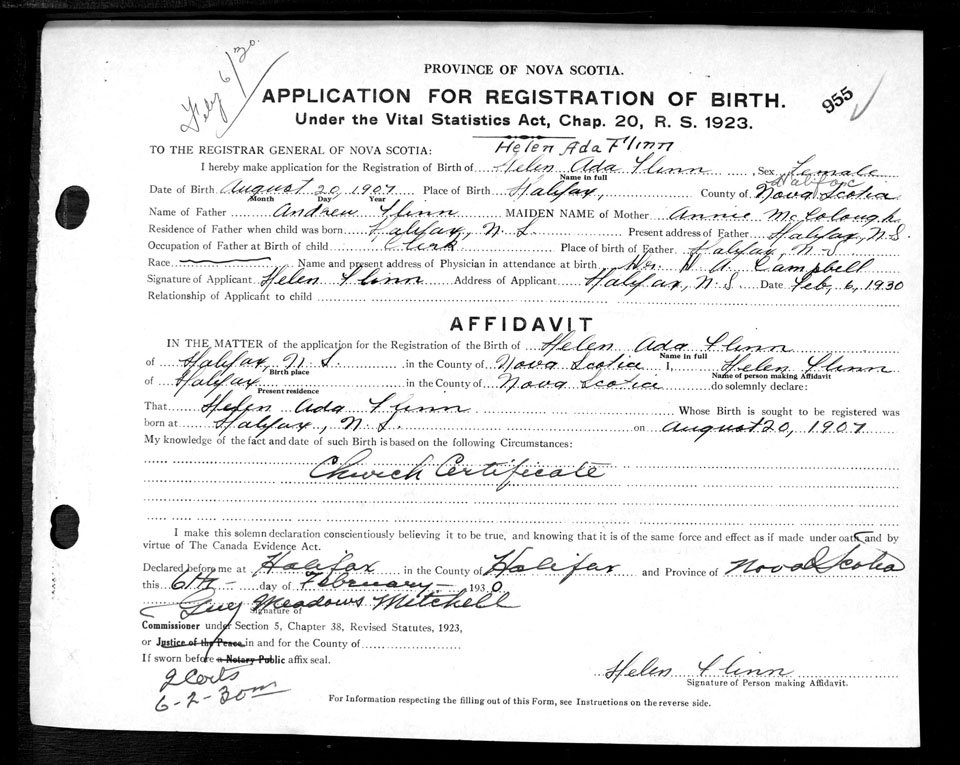 Feby 6/30
PROVINCE OF NOVA SCOTIA.
955
APPLICATION FOR REGISTRATION OF BIRTH.
Under the Vital Statistics Act, Chap. 20, R. S. 1923.
Helen Ada Flinn
TO THE REGISTRAR GENERAL OF NOVA SCOTIA:
I hereby make application for the Registration of Birth of Helen Ada Flinn, Sex Female
Name in full
Halifax
Date of Birth August 20, 1907 Place of Birth Halifax, County of Nova Scotia
Month Day Year
Name of Father Andrew Flinn MAIDEN NAME of Mother Annie McColough
Residence of Father when child was born Halifax, N. S. Present address of Father Halifax, N.S.
Occupation of Father at Birth of child Clerk Place of birth of Father Halifax, N-S
Race Name and present address of Physician in attendance at birth Dr. A. Campbell
Signature of Applicant Helen Flinn Address of Applicant Halifax, N. S. Date Feb, 6, 1930
Relationship of Applicant to child
AFFIDAVIT
IN THE MATTER of the application for the Registration of the Birth of Helen Ada Flinn
Name in full
of Halifax, N. S. in the County of Nova Scotia I, Helen Flinn
Birth place Name of person making Affidavit
of Halifax in the County of Nova Scotia do solemnly declare:
Present residence
That Helen Ada Flinn Whose Birth is sought to be registered was
born at Halifax, N. S. on August 20, 1907
My knowledge of the fact and date of such Birth is based on the following Circumstances:
Church Certificate
I make this solemn declaration conscientiously believing it to be true, and knowing that it is of the same force and effect as if made under oath and by
virtue of The Canada Evidence Act.
Declared before me at Halifax in the County of Halifax and Province of Nova Scotia
this 6th day of February 1930
Guy Meadows Mitchell
Signature of
Commissioner under Section 5, Chapter 38, Revised Statutes, 1923,
or Justice of the Peace in and for the County of
If sworn before a Notary Public affix seal.
2 Certs
6-2-30
Helen Flinn
Signature of Person making Affidavit.
For Information respecting the filling out of this Form, see Instructions on the reverse side.